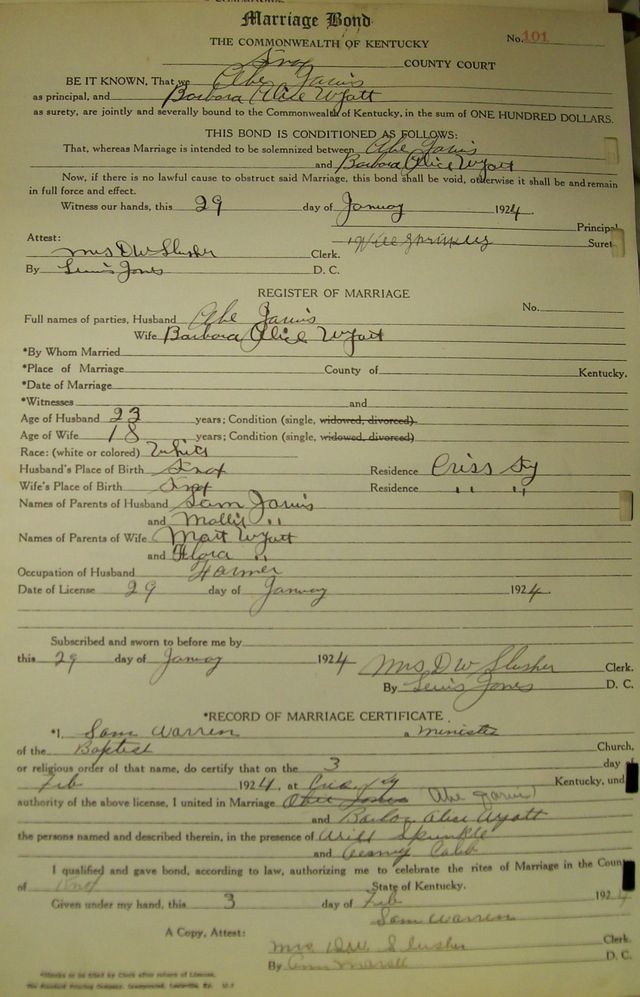 Marriage Bond
THE COMMONWEALTH OF KENTUCKY
No. 101
Knox COUNTY COURT
BE IT KNOWN, That we Abe Jarvis
as principal, and Barbara Alice Wyatt
as surety, are jointly and severally bound to the Commonwealth of Kentucky, in the sum of ONE HUNDRED DOLLARS.
THIS BOND IS CONDITIONED AS FOLLOWS:
That, whereas Marriage is intended to be solemnized between Abe Jarvis
and Barbara Alice Wyatt
Now, if there is no lawful cause to obstruct said Marriage, this bond shall be void, otherwise it shall be and remain
in full force and effect.
Witness our hands, this 29 day of January 1924.
Principal
Attest: Suret
Mrs D W Slusher Clerk.
By Lewis Jones D. C.
REGISTER OF MARRIAGE
No.
Full names of parties, Husband Abe Jarvis
Wife Barbara Alice Wyatt
*By Whom Married
*Place of Marriage County of Kentucky.
*Date of Marriage
*Witnesses and
Age of Husband 23 years; Condition (single, widowed, divorced)
Age of Wife 18 years; Condition (single, widowed, divorced)
Race: (white or colored) White
Husband's Place of Birth Knox Residence Criss Ky
Wife's Place of Birth Knox Residence " "
Names of Parents of Husband Sam Jarvis
and Mollie "
Names of Parents of Wife Matt Wyatt
and Flora "
Occupation of Husband Farmer
Date of License 29 day of January 1924.
Subscribed and sworn to before me by
this 29 day of January 1924 Mrs D W Slusher Clerk.
By Lewis Jones D. C.
*RECORD OF MARRIAGE CERTIFICATE
*I, Sam Warren a Minister
of the Baptist Church,
or religious order of that name, do certify that on the 3 day of
Feb 1924, at Criss Ky Kentucky, und
authority of the above license, I united in Marriage (Abe Jarvis)
and Barbara Alice Wyatt
the persons named and described therein, in the presence of Will Sprinkle
and
I qualified and gave bond, according to law, authorizing me to celebrate the rites of Marriage in the Coun
of Knox State of Kentucky.
Given under my hand, this 3 day of Feb 1924
Sam Warren
A Copy, Attest:
Mrs D W Slusher Clerk.
By D. C.
*Blanks to be filled by Clerk after return of License.